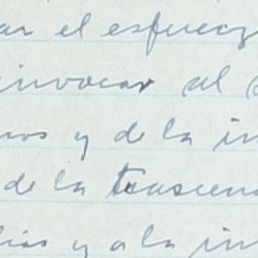 ar el esfuerz
invocar al
nos y de la in
de la trascen
lias y a la in